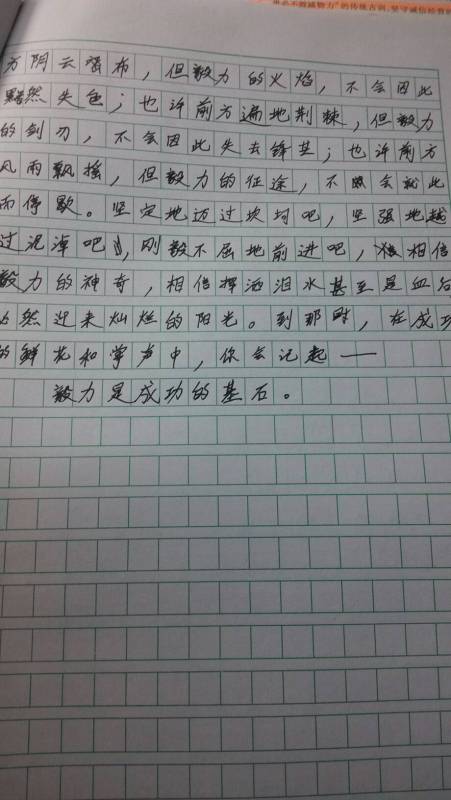 贵必不敢减物力”的传统古训，坚守诚信经营的
方阴云密布，但毅力的火焰，不会因此
黯然失色；也许前方遍地荆棘，但毅力
的剑刃，不会因此失去锋芒；也许前方
风雨飘摇，但毅力的征途，不会就此
而停歇。坚定地迈过坎坷吧，坚强地越
过泥淖吧，刚毅不屈地前进吧，相信
毅力的神奇，相信挥洒泪水甚至是血后
必然迎来灿烂的阳光。到那时，在成功
的鲜花和掌声中，你会记起——
毅力是成功的基石。